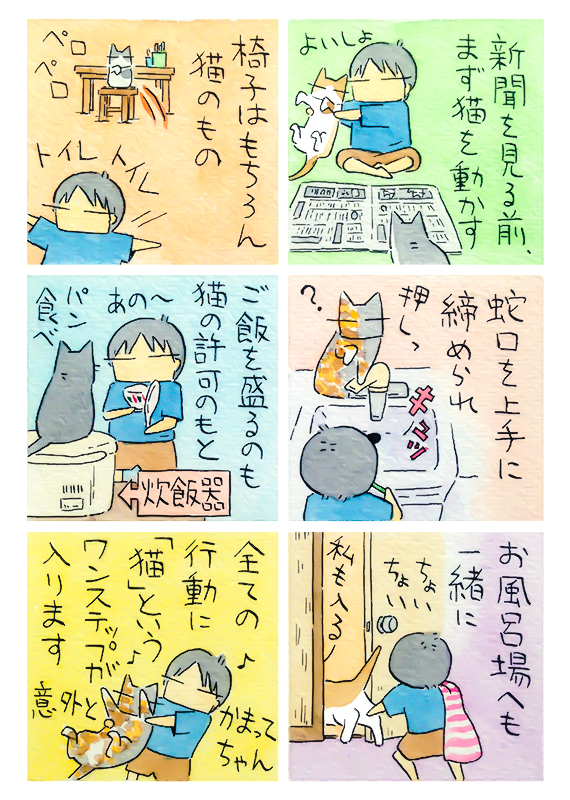 新聞を見る前、
まず猫を動かす
よいしょ
椅子はもちろん
猫のもの
ペロ
ペロ
トイレトイレ
蛇口を上手に
締められ
押しっ
?
キュッ
ご飯を盛るのも
猫の許可のもと
あの〜
パン
食べ
炊飯器
お風呂場へも
一緒に
ちょい
ちょい
私も入る
全ての♪
行動に
「猫」という♪
ワンステップが
入ります
意外と
かまって
ちゃん